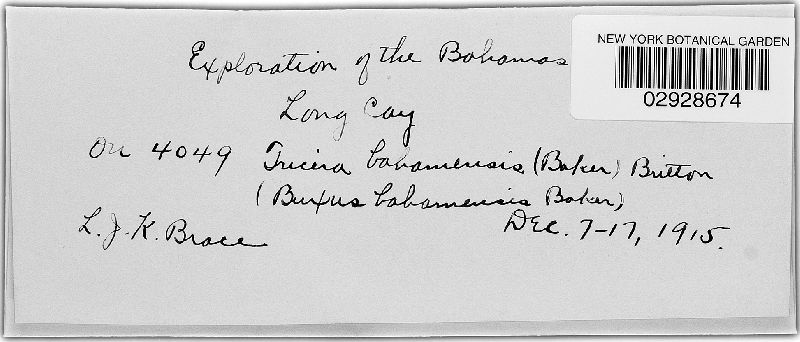 NEW YORK BOTANICAL GARDEN
02928674
Exploration of the Bahamas
Long Cay
On 4049 Tricera bahamensis (Baker) Britton
(Buxus bahamensis Baker)
L. J. K. Brace Dec. 7-17, 1915.